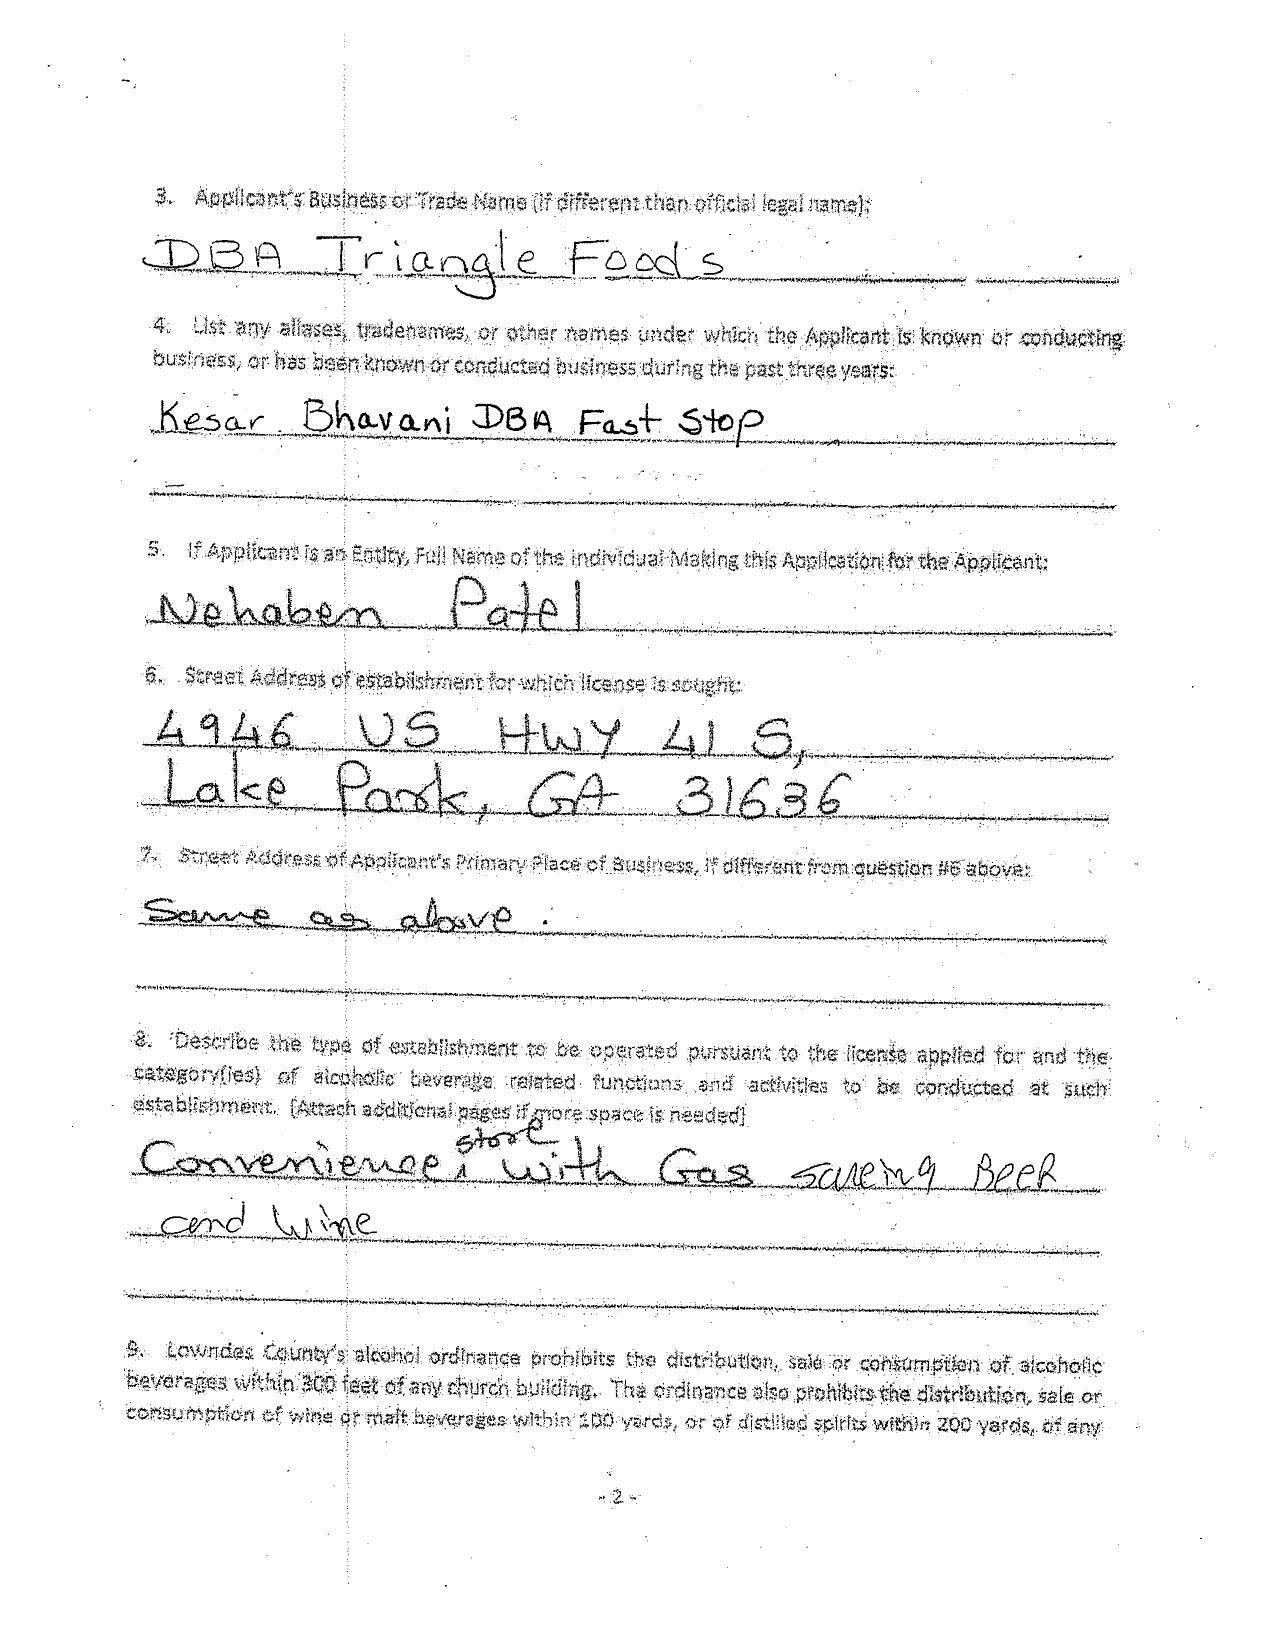 3. Applicant's Business or Trade Name (if different than official legal name):
DBA Triangle Foods
4. List any aliases, tradenames, or other names under which the Applicant is known or conducting
business, or has been known or conducted business during the past three years:
Kesar Bhavani DBA Fast Stop
5. If Applicant is an Entity, Full Name of the Individual Making this Application for the Applicant:
Nehaben Patel
6. Street Address of establishment for which license is sought:
4946 US HWY 41 S,
Lake Park, GA 31636
7. Street Address of Applicant's Primary Place of Business, if different from question #6 above:
Same as above.
8. Describe the type of establishment to be operated pursuant to the license applied for and the
category(ies) of alcoholic beverage related functions and activities to be conducted at such
establishment. [Attach additional pages if more space is needed]
store
Convenience with Gas Beer
and Wine
9. Lowndes County's alcohol ordinance prohibits the distribution, sale or consumption of alcoholic
beverages within 300 feet of any church building. The ordinance also prohibits the distribution, sale or
consumption of wine or malt beverages within 100 yards, or of distilled spirits within 200 yards, of any
- 2 -